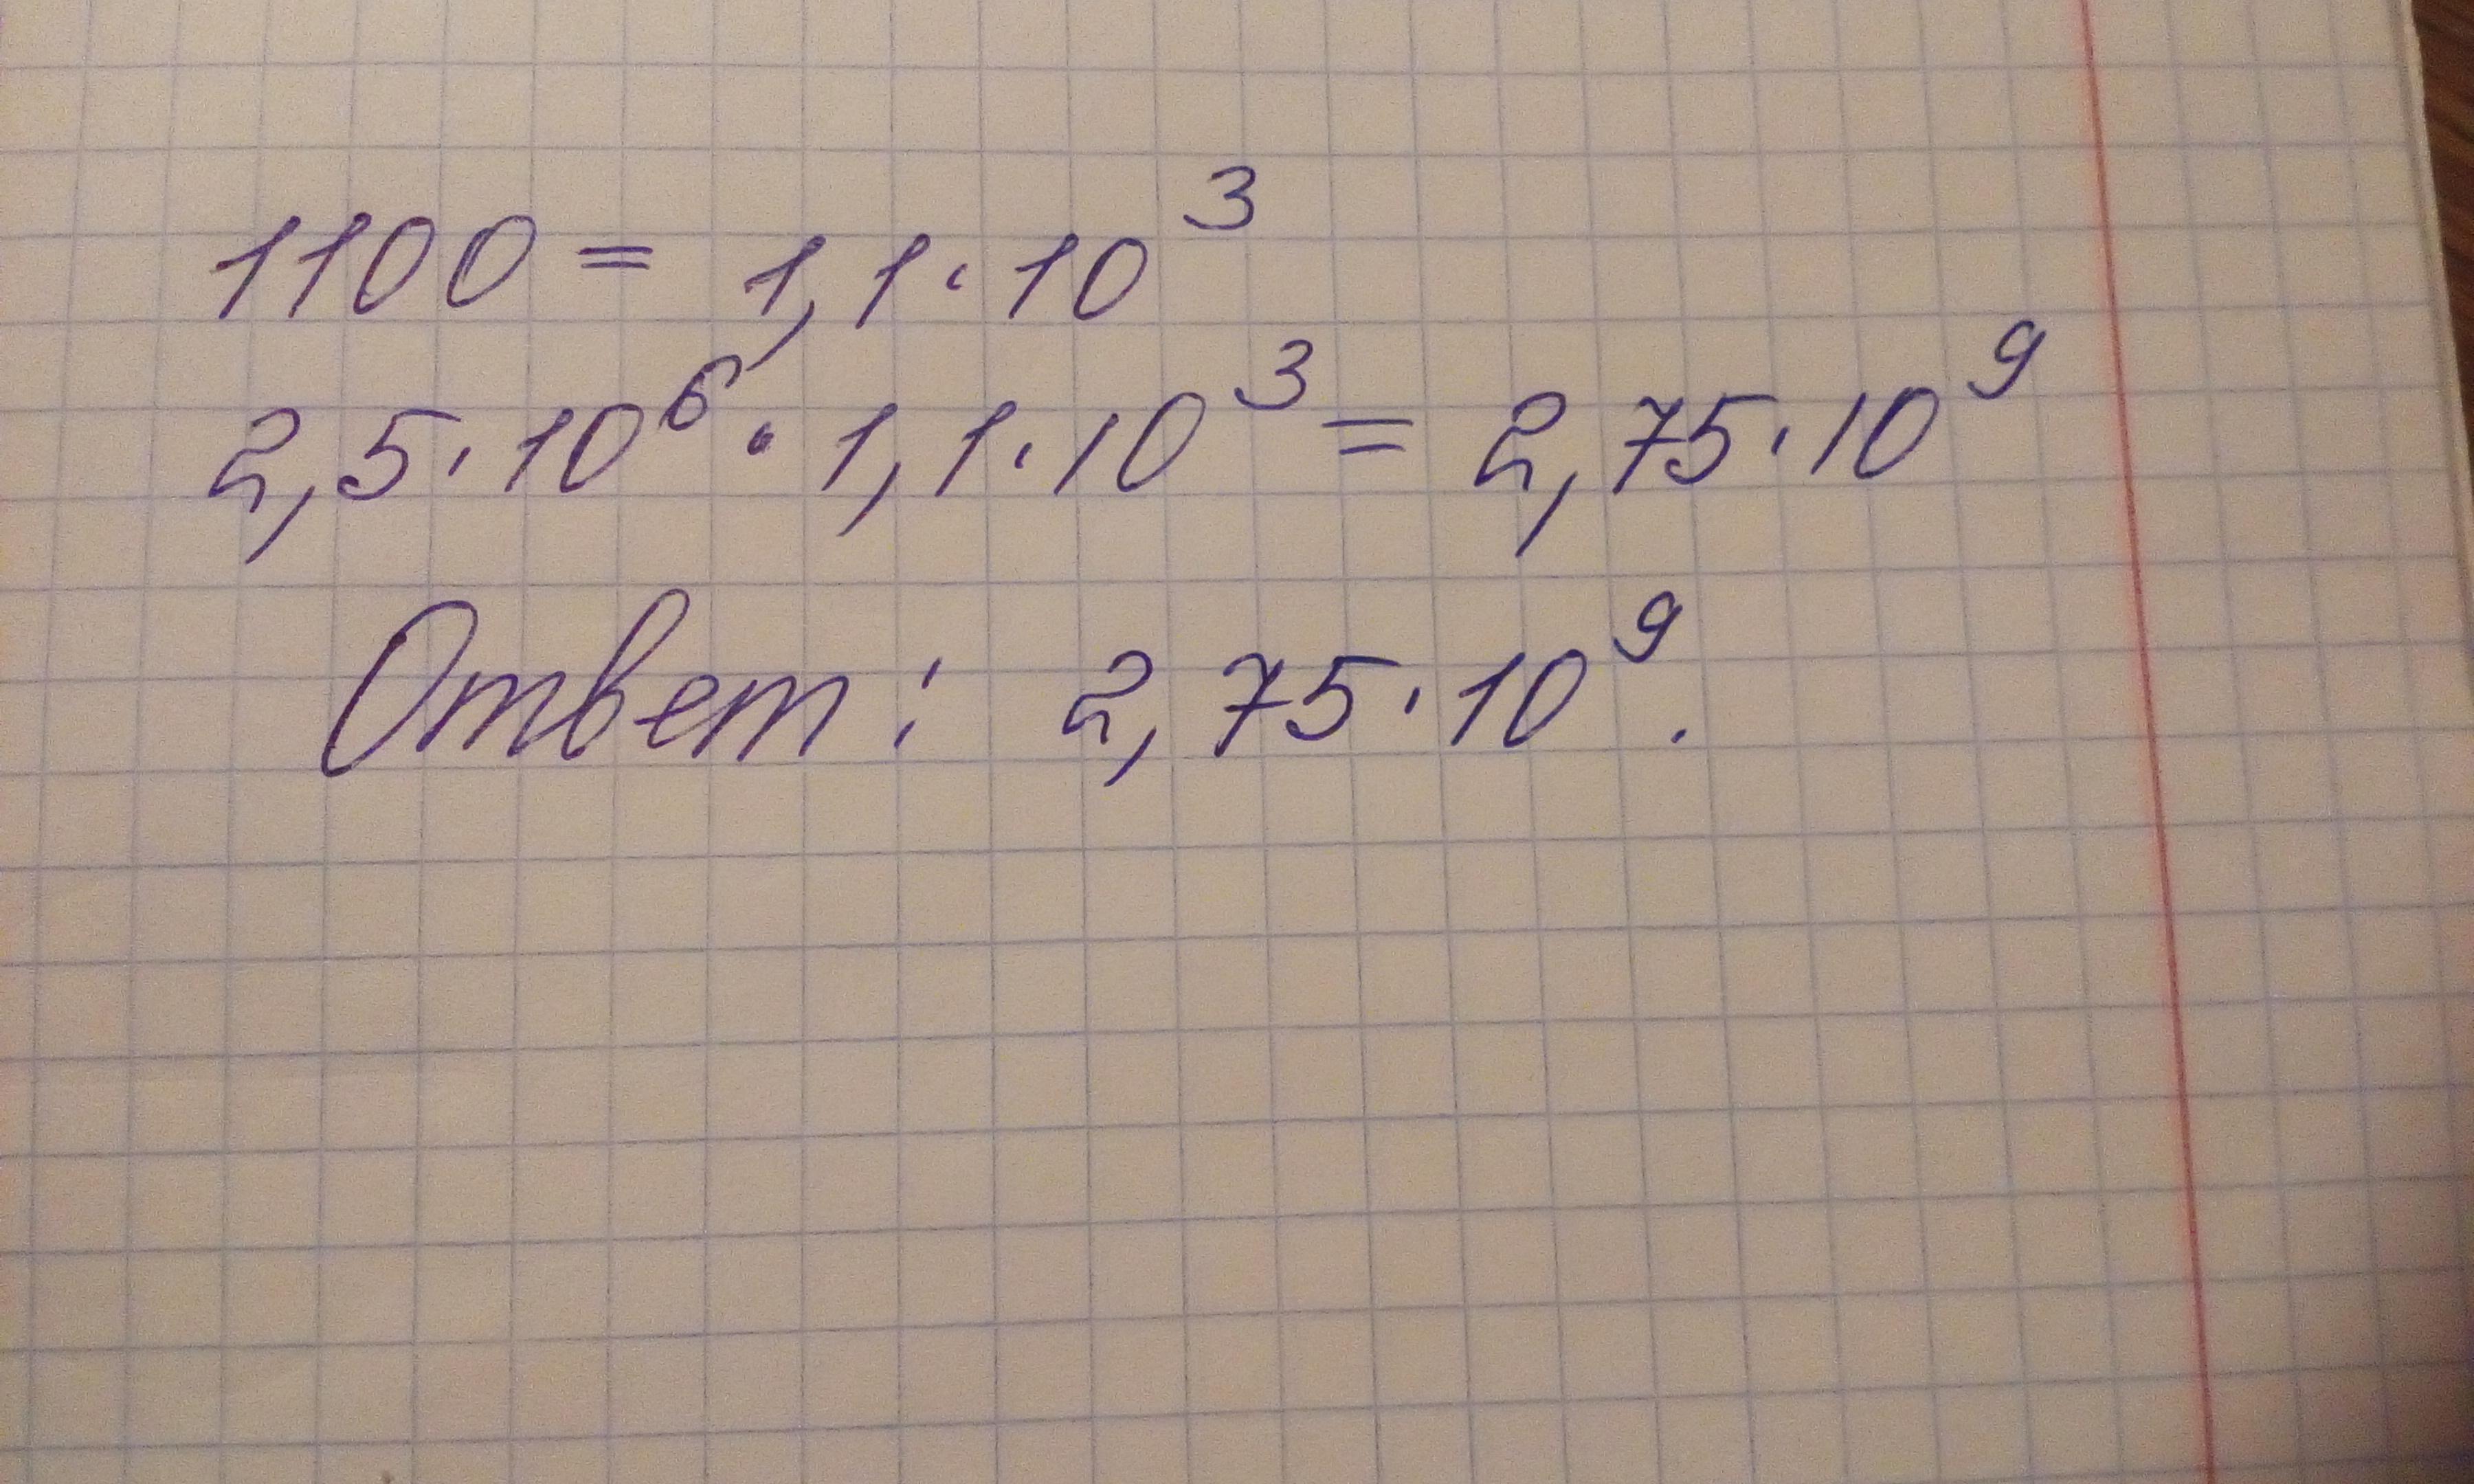 1100 = 1,1·10³
2,5·10⁶ · 1,1·10³ = 2,75·10⁹
Ответ: 2,75·10⁹.